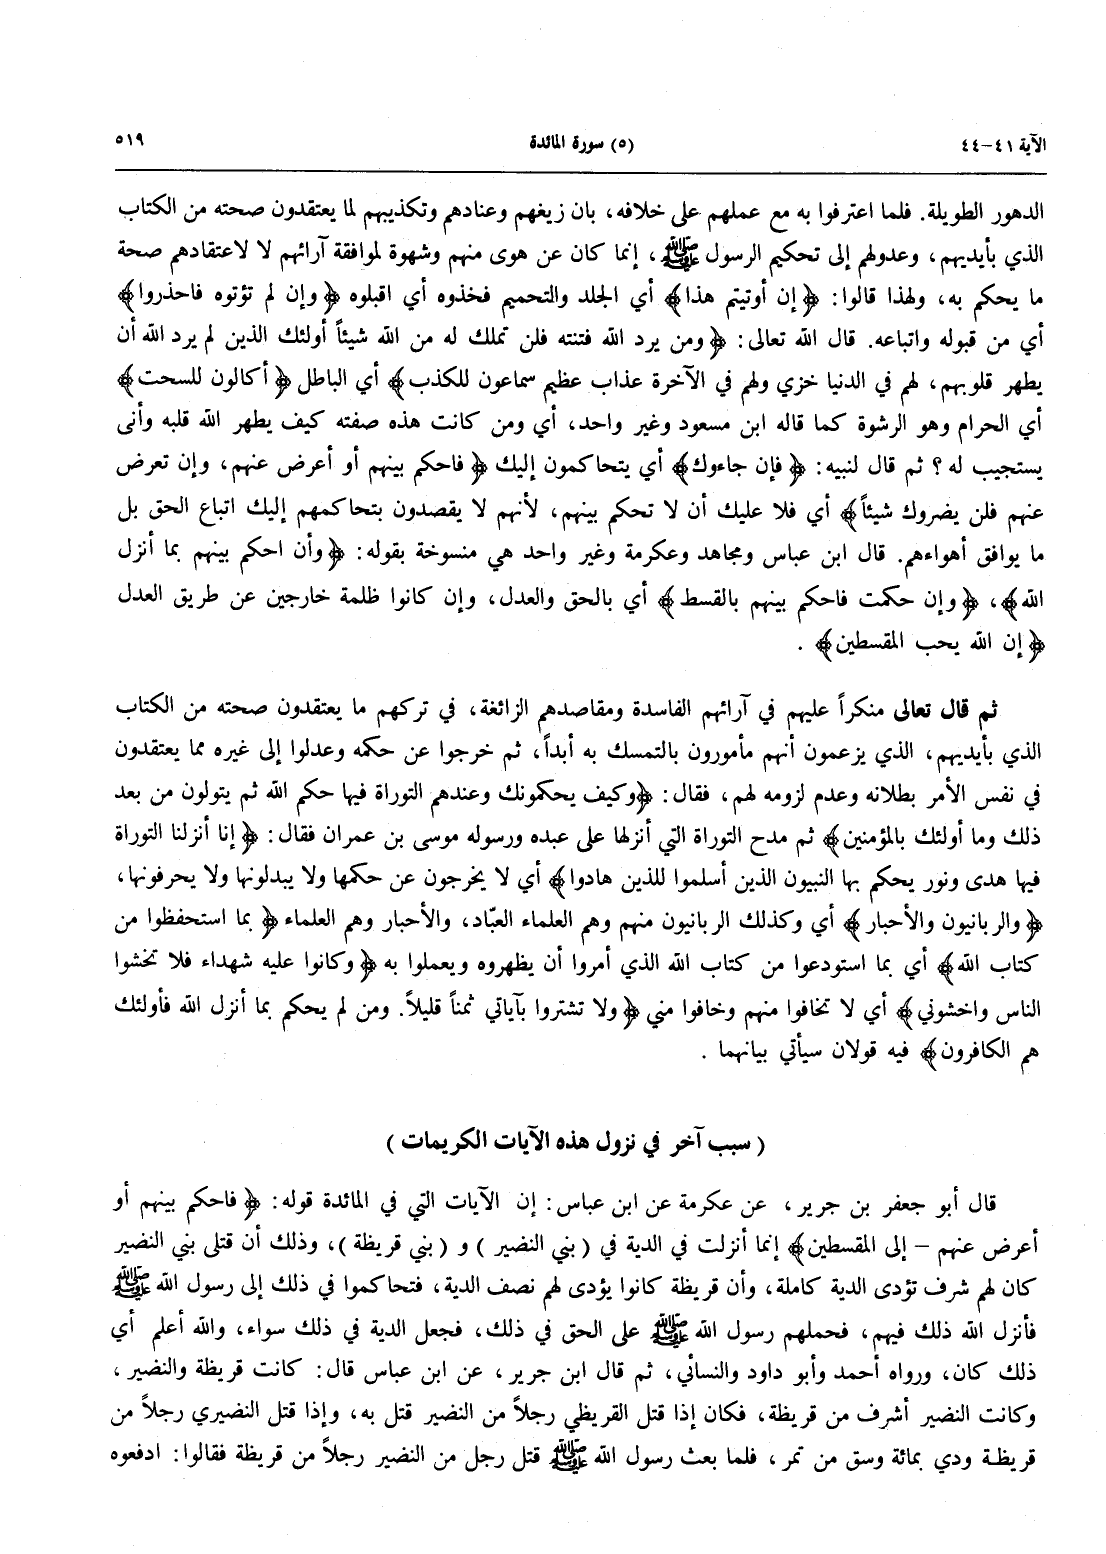 الآية ٤١-٤٤ (٥) سورة المائدة ٥١٩
الدهور الطويلة. فلما اعترفوا به مع عملهم على خلافه، بان زيغهم وعنادهم وتكذيبهم لما يعتقدون صحته من الكتاب
الذي بأيديهم، وعدولهم إلى تحكيم الرسول ﷺ، إنما كان عن هوى منهم وشهوة لموافقة آرائهم لا لاعتقادهم صحة
ما يحكم به، ولهذا قالوا: ﴿إن أوتيتم هذا﴾ أي الجلد والتحميم فخذوه أي اقبلوه ﴿وإن لم تؤتوه فاحذروا﴾
أي من قبوله واتباعه. قال الله تعالى: ﴿ومن يرد الله فتنته فلن تملك له من الله شيئاً أولئك الذين لم يرد الله أن
يطهر قلوبهم، لهم في الدنيا خزي ولهم في الآخرة عذاب عظيم سماعون للكذب﴾ أي الباطل ﴿أكالون للسحت﴾
أي الحرام وهو الرشوة كما قاله ابن مسعود وغير واحد، أي ومن كانت هذه صفته كيف يطهر الله قلبه وأنى
يستجيب له؟ ثم قال لنبيه: ﴿فإن جاءوك﴾ أي يتحاكمون إليك ﴿فاحكم بينهم أو أعرض عنهم، وإن تعرض
عنهم فلن يضروك شيئاً﴾ أي فلا عليك أن لا تحكم بينهم، لأنهم لا يقصدون بتحاكمهم إليك اتباع الحق بل
ما يوافق أهواءهم. قال ابن عباس ومجاهد وعكرمة وغير واحد هي منسوخة بقوله: ﴿وأن احكم بينهم بما أنزل
الله﴾، ﴿وإن حكمت فاحكم بينهم بالقسط﴾ أي بالحق والعدل، وإن كانوا ظلمة خارجين عن طريق العدل
﴿إن الله يحب المقسطين﴾ .
ثم قال تعالى منكراً عليهم في آرائهم الفاسدة ومقاصدهم الزائغة، في تركهم ما يعتقدون صحته من الكتاب
الذي بأيديهم، الذي يزعمون أنهم مأمورون بالتمسك به أبداً، ثم خرجوا عن حكمه وعدلوا إلى غيره مما يعتقدون
في نفس الأمر بطلانه وعدم لزومه لهم، فقال: ﴿وكيف يحكمونك وعندهم التوراة فيها حكم الله ثم يتولون من بعد
ذلك وما أولئك بالمؤمنين﴾ ثم مدح التوراة التي أنزلها على عبده ورسوله موسى بن عمران فقال: ﴿إنا أنزلنا التوراة
فيها هدى ونور يحكم بها النبيون الذين أسلموا للذين هادوا﴾ أي لا يخرجون عن حكمها ولا يبدلونها ولا يحرفونها،
﴿والربانيون والأحبار﴾ أي وكذلك الربانيون منهم وهم العلماء العبّاد، والأحبار وهم العلماء ﴿بما استحفظوا من
كتاب الله﴾ أي بما استودعوا من كتاب الله الذي أمروا أن يظهروه ويعملوا به ﴿وكانوا عليه شهداء فلا تخشوا
الناس واخشوني﴾ أي لا تخافوا منهم وخافوا مني ﴿ولا تشتروا بآياتي ثمناً قليلاً. ومن لم يحكم بما أنزل الله فأولئك
هم الكافرون﴾ فيه قولان سيأتي بيانهما .
( سبب آخر في نزول هذه الآيات الكريمات )
قال أبو جعفر بن جرير، عن عكرمة عن ابن عباس: إن الآيات التي في المائدة قوله: ﴿فاحكم بينهم أو
أعرض عنهم – إلى المقسطين﴾ إنما أنزلت في الدية في ( بني النضير ) و ( بني قريظة )، وذلك أن قتلى بني النضير
كان لهم شرف تؤدى الدية كاملة، وأن قريظة كانوا يؤدى لهم نصف الدية، فتحاكموا في ذلك إلى رسول الله ﷺ
فأنزل الله ذلك فيهم، فحملهم رسول الله ﷺ على الحق في ذلك، فجعل الدية في ذلك سواء، والله أعلم أي
ذلك كان، ورواه أحمد وأبو داود والنسائي، ثم قال ابن جرير، عن ابن عباس قال: كانت قريظة والنضير،
وكانت النضير أشرف من قريظة، فكان إذا قتل القريظي رجلاً من النضير قتل به، وإذا قتل النضيري رجلاً من
قريظة ودي بمائة وسق من تمر، فلما بعث رسول الله ﷺ قتل رجل من النضير رجلاً من قريظة فقالوا: ادفعوه